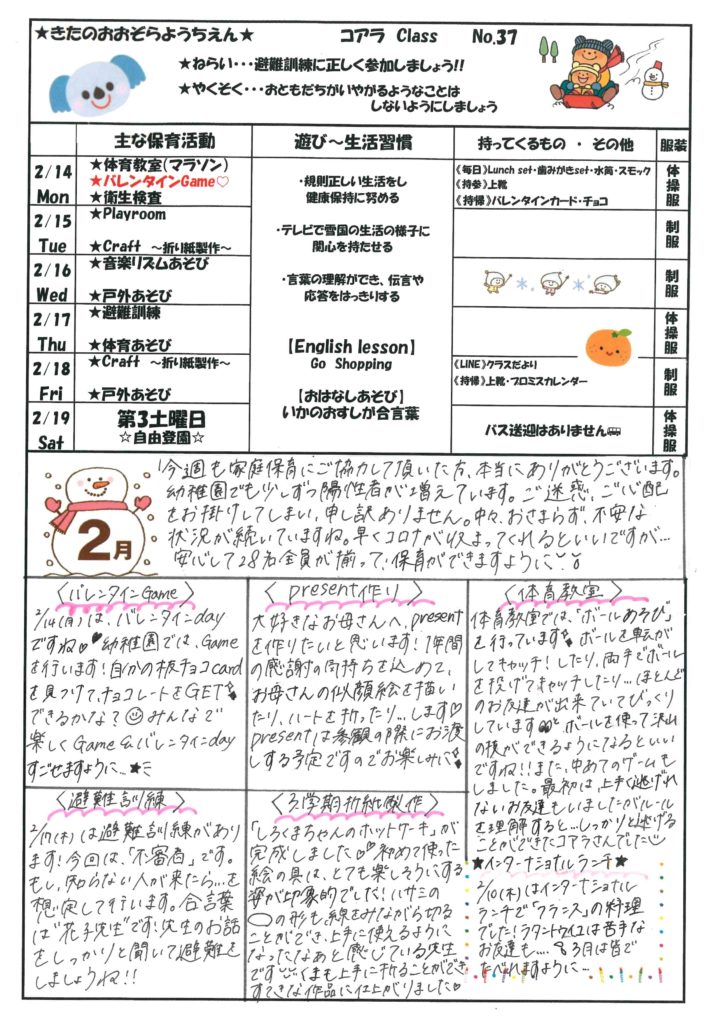 ★きたのおおぞらようちえん★ コアラ Class No.37
★ねらい・・・避難訓練に正しく参加しましょう!!
★やくそく・・・おともだちがいやがるようなことは
しないようにしましょう
主な保育活動 遊び～生活習慣 持ってくるもの ・ その他 服装
2/14 Mon
★体育教室(マラソン)
★バレンタインGame♡
★衛生検査
《毎日》Lunch set・歯みがきset・水筒・スモック
《持参》上靴
《持帰》バレンタインカード・チョコ
体操服
2/15 Tue
★Playroom
★Craft ～折り紙製作～
制服
2/16 Wed
★音楽リズムあそび
★戸外あそび
制服
2/17 Thu
★避難訓練
★体育あそび
体操服
2/18 Fri
★Craft ～折り紙製作～
★戸外あそび
《LINE》クラスだより
《持帰》上靴・プロミスカレンダー
制服
2/19 Sat
第3土曜日
☆自由登園☆
バス送迎はありません
体操服
・規則正しい生活をし
健康保持に努める
・テレビで雪国の生活の様子に
関心を持たせる
・言葉の理解ができ、伝言や
応答をはっきりする
【English lesson】
Go Shopping
【おはなしあそび】
いかのおすしが合言葉
2月
今週も家庭保育にご協力して頂いた方、本当にありがとうございます。
幼稚園でも少しずつ陽性者が増えています。ご迷惑、ご心配
をお掛けしてしまい、申し訳ありません。中々、おさまらず、不安な
状況が続いていますね。早くコロナが収まってくれるといいですが…
安心して28名全員が揃って、保育ができますように
〈バレンタインGame〉
2/14(月)は、バレンタインday
ですね♥幼稚園では、Game
を行います!自分の板チョコcard
を見つけて、チョコレートをGET
できるかな?みんなで
楽しくGame&バレンタインday
すごせますように…★
〈present作り〉
大好きなお母さんへ、present
を作りたいと思います!1年間
の感謝の気持ちを込めて、
お母さんの似顔絵を描い
たり、ハートを折ったり…します♡
presentは参観の際にお渡
しする予定ですのでお楽しみに
〈体育教室〉
体育教室では、「ボールあそび」
を行っています。ボールを転が
してキャッチ!したり、両手でボール
を投げてキャッチしたり…ほとんど
のお友達が出来ていてびっくり
しています ボールを使って沢山
の技ができるようになるといい
ですね!!また、中あてのゲームも
しました。最初は上手く逃げれ
ないお友達もいましたがルール
を理解すると…しっかりと逃げる
ことができたコアラさんでした
〈避難訓練〉
2/17(木)は避難訓練があり
ます!今回は、「不審者」です。
もし、知らない人が来たら…を
想定して行います。合言葉
は"花子先生"です!先生のお話
をしっかりと聞いて避難を
しましょうね!!
〈3学期折紙製作〉
「しろくまちゃんのホットケーキ」が
完成しました♡初めて使った
絵の具は、とても楽しそうにする
姿が印象的でした!ハサミの
の形も、線をみながら切る
ことができ、上手に使えるように
なったなぁと感じている先生
です くまも上手に折ることができ
すてきな作品に仕上がりました♡
★インターナショナルランチ★
2/10(木)はインターナショナル
ランチで「フランス」の料理
でした!ラタトゥイユは苦手な
お友達も… 3月は皆で
たべれますように…